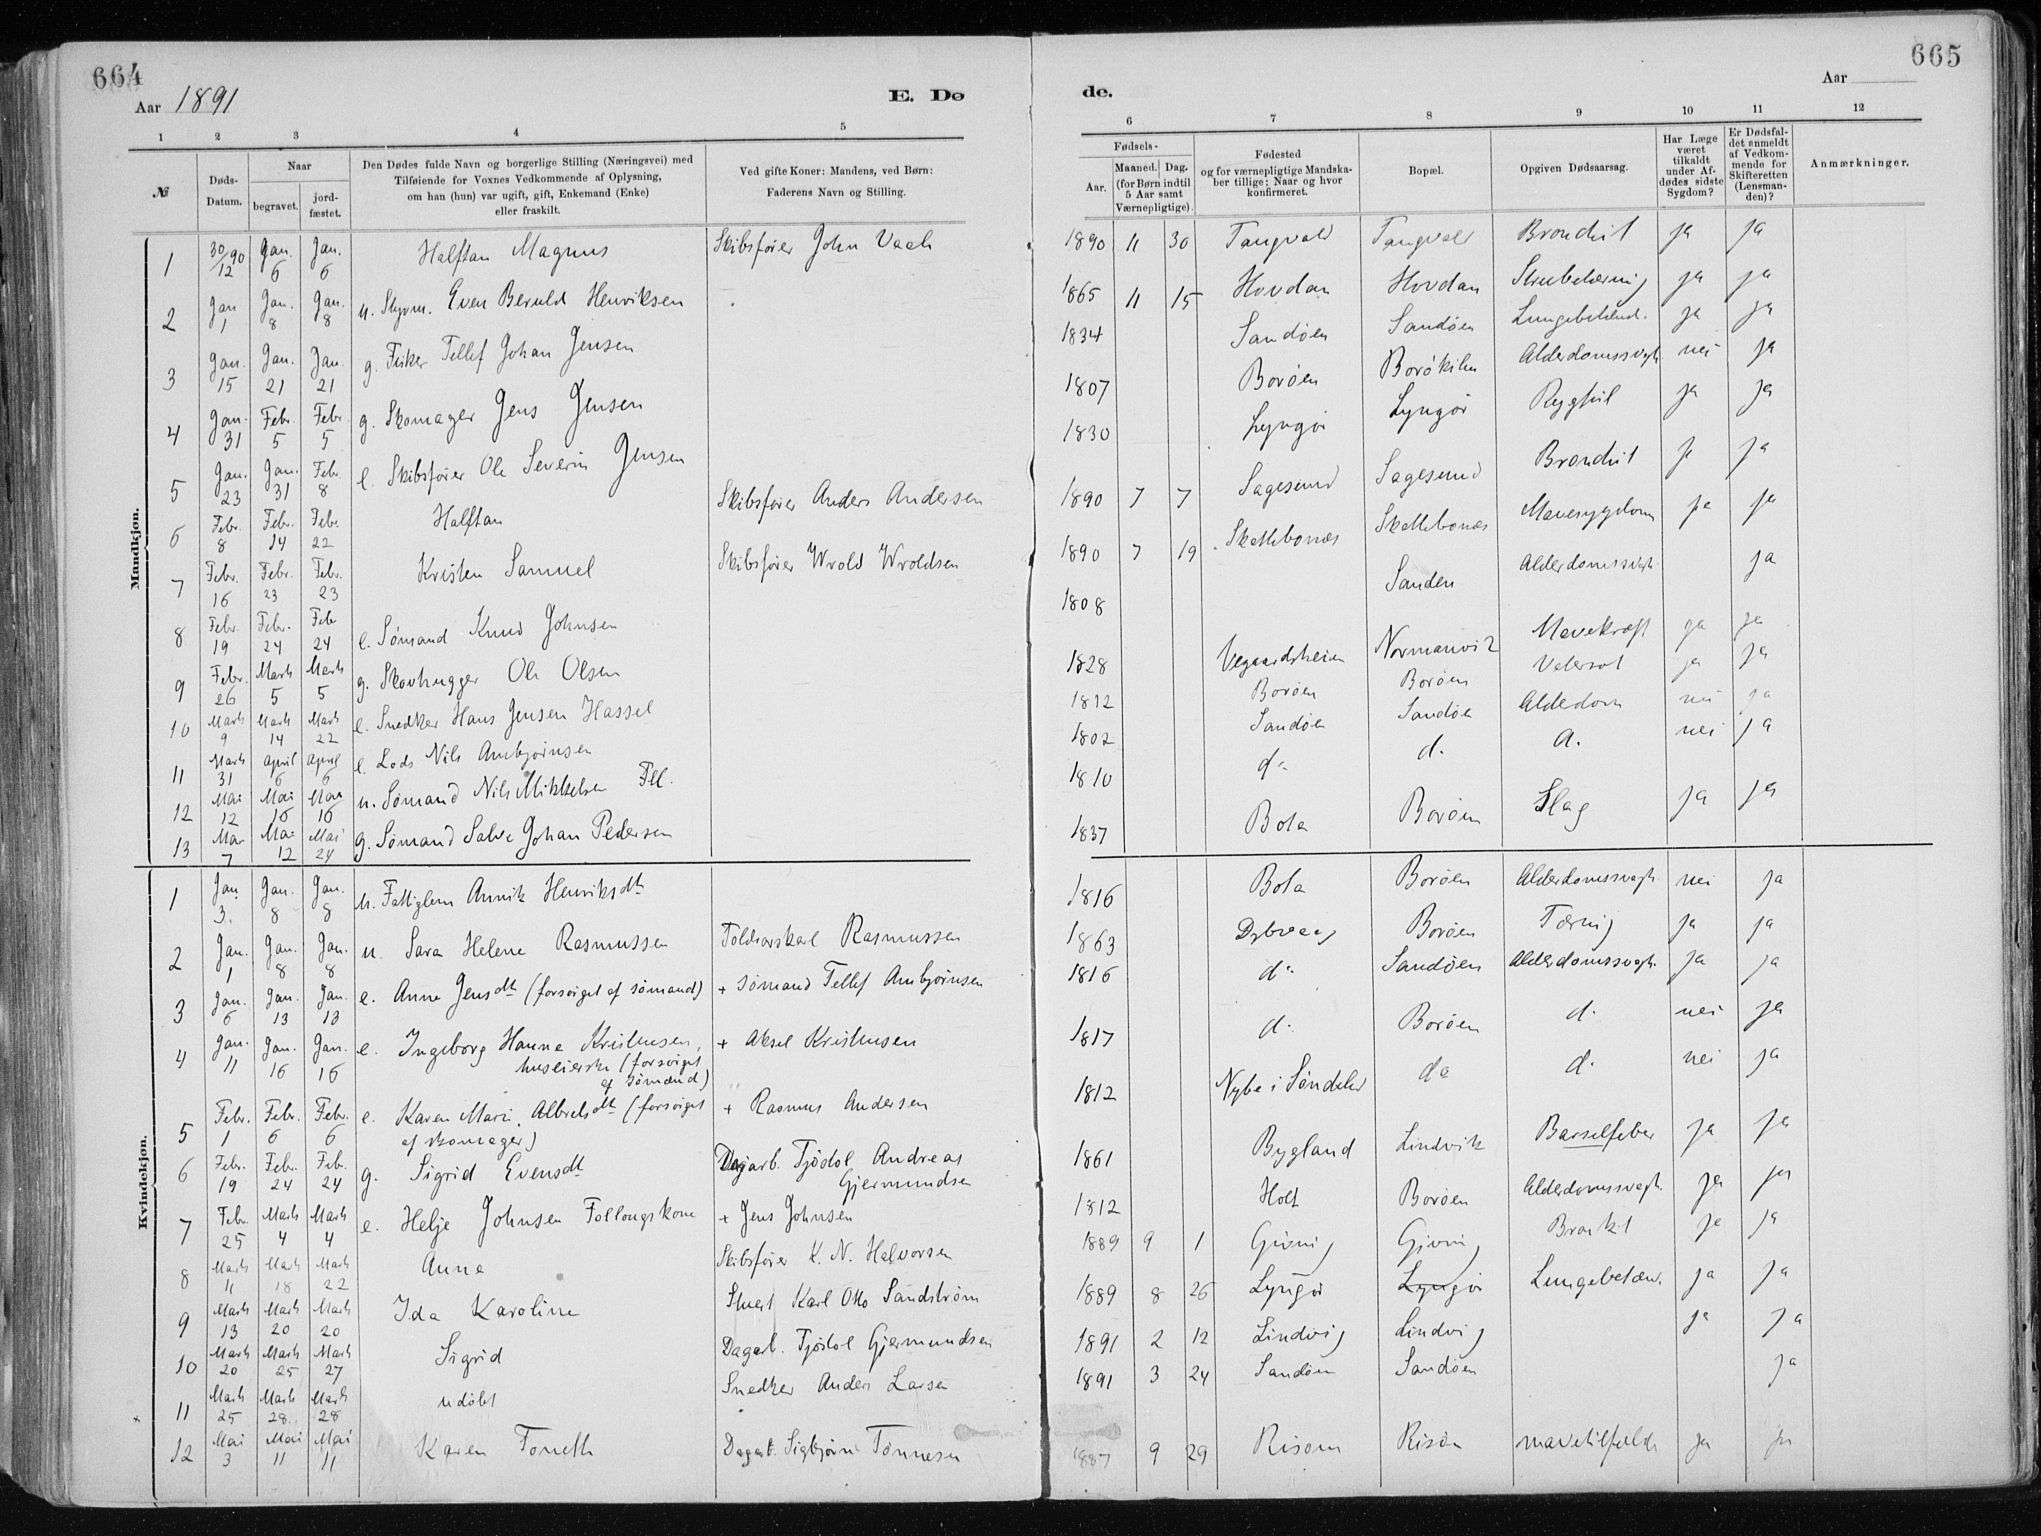 664
665
Aar 1891
E. Dø
de.
Aar
1 2 3 4 5 6 7 8 9 10 11 12
№
Døds-Datum.
Naar
begravet.
jord-fæstet.
Den Dødes fulde Navn og borgerlige Stilling (Næringsvei) med
Tilføiende for Voxnes Vedkommende af Oplysning,
om han (hun) var ugift, gift, Enkemand (Enke)
eller fraskilt.
Ved gifte Koner: Mandens, ved Børn:
Faderens Navn og Stilling.
Fødsels-
Aar.
Maaned. Dag.
(for Børn indtil
5 Aar samt
Værnepligtige).
Fødested
og for værnepligtige Mandska-
ber tillige: Naar og hvor
konfirmeret.
Bopæl.
Opgiven Dødsaarsag.
Har Læge
været
tilkaldt
under Af-
dødes sidste
Sygdom?
Er Dødsfal-
det anmeldt
af Vedkom-
mende for
Skifteretten
(Lensman-
den)?
Anmærkninger.
Mandkjøn.
1 30/12 90 Jan. 6 Jan. 6 Halftan Magnus Skibsfører John Vaah 1890 11 30 Tangvald Tangvald Bronchit ja ja
2 Jan 1 Jan. 8 Jan. 8 u. Styrm. Even Beruld Henriksen 1865 11 15 Hovdan Hovdan Strubetæring ja ja
3 Jan. 15 Jan. 21 Jan. 21 g. Fisker Tellef Johan Jensen 1834 Sandøen Sandøen Lungebetænd. ja ja
4 Jan. 31 Febr. 5 Febr. 5 g. Skomager Jens Jensen 1807 Borøen Borøkilen Alderdomssvagh. nei ja
5 Jan. 23 Jan. 31 Febr 8 e. Skibsfører Ole Severin Jensen 1830 Lyngør Lyngør ja ja
6 Febr. 8 Febr. 14 Febr. 22 Halftan Skibsfører Anders Andersen 1890 7 7 Sagesund Sagesund Bronchit ja ja
7 Febr. 16 Febr. 23 Febr. 23 Kristen Samuel Skibsfører Wrold Wroldsen 1890 7 19 Skattebonæs Skattebonæs Mavesygdom ja ja
8 Febr. 19 Febr. 24 Feb 24 e. Sømand Knud Johnsen 1808 Sanden Alderdomssvagh. ja
9 Febr. 26 Marts 5 Marts 5 g. Skovhugger Ole Olsen 1828 Vegaardsheien Normanvik Mavekræft ja ja
10 Marts 9 Marts 14 Marts 22 e. Snedker Hans Jensen Hassel 1812 Borøen Borøen Vatersot ja ja
11 Marts 31 April 6 April 6 e. Lods Nils Ambjørnsen 1802 Sandøen Sandøe Alderdom nei ja
12 Mai 12 Mai 16 Mai 16 u. Sømand Nils Mikkelsen Fll. 1810 do d. d. nei ja
13 Mai 7 Mai 12 Mai 24 g. Sømand Salve Johan Pedersen 1837 Bota Borøen Slag ja ja
Kvindekjøn.
1 Jan 3. Jan. 8 Jan. 8 u. Fattiglem Annik Henriksdtr 1816 Bota Borøen Alderdomssvagh. nei ja
2 Jan. 1 Jan. 8 Jan. 8 u. Sara Helene Rasmussen Toldroerskarl Rasmussen 1863 Dybvaag Borøen Tæring ja ja
3 Jan. 6 Jan. 13 Jan. 13 e. Anne Jensdtr (forsørget af sømand) + sømand Tellef Ambjørnsen 1816 do Sandøen Alderdomssvagh. ja ja
4 Jan. 11 Jan. 16 Jan. 16 e. Ingeborg Hanne Kristensen, + Aksel Kristensen 1817 d. Borøen d. nei ja
huseierske (forsørget
af sømænd)
5 Febr. 1 Febr. 6 Febr. 6 e. Karen Marie Albretsdtr (forsørget + Rasmus Andersen 1812 Nybø i Søndeled do d. nei ja
af skomager)
6 Febr. 19 Febr. 24 Feb. 24 g. Sigrid Evensdtr Dagarb. Tjødol Andreas 1861 Bygland Lindvik Barselfeber ja ja
Gjermundsen
7 Febr. 25 Marts 4 Marts 4 e. Helje Johnsen Follougskone + Jens Johnsen 1812 Holt Borøen Alderdomssvagh. ja ja
8 Marts 11 Marts 18 Marts 22 Anne Skibsfører K. N. Halvorsen 1889 9 1 Gjeving Gjeving Bronkit ja ja
9 Marts 13 Marts 20 Marts 20 Ida Karoline Stuert Karl Otto Sandstrøm 1889 8 26 Lyngør Lyngør Lungebetæn. ja ja
10 Marts 20 Marts 25 Marts 27 Sigrid Dagarb. Tjødol Gjermundsen 1891 2 12 Lindvig Lindvig ja ja
11 Marts 25 Marts 28. Marts 28 udøbt Snedker Anders Larsen 1891 3 24 Sandøen Sandøen ja
12 Mai 3 Mai 11 Mai 11 Karen Toneth Dagarb. Sigbjørn Tønnesen 1887 9 29 Risøen Risøen mavetilfælde ja ja